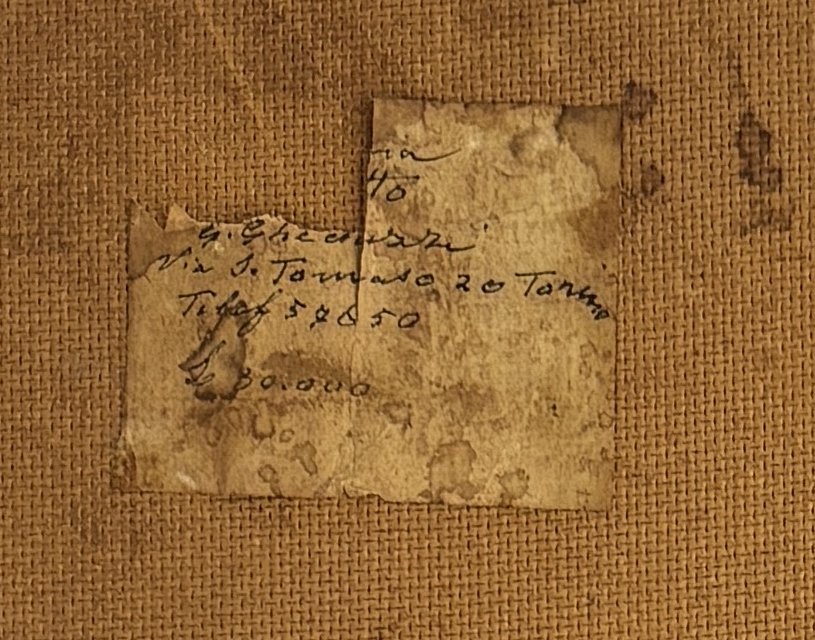 ria
40
G. Gheduzzi
Via S. Tomaso 20 Torino
Telef 57650
L. 30.000